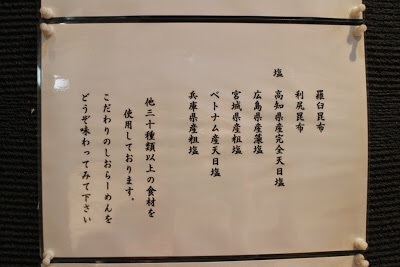 羅臼昆布
利尻昆布
塩 高知県産完全天日塩
広島県産藻塩
宮城県産粗塩
ベトナム産天日塩
兵庫県産粗塩
他三十種類以上の食材を
使用しております。
こだわりのしおらーめんを
どうぞ味わってみて下さい